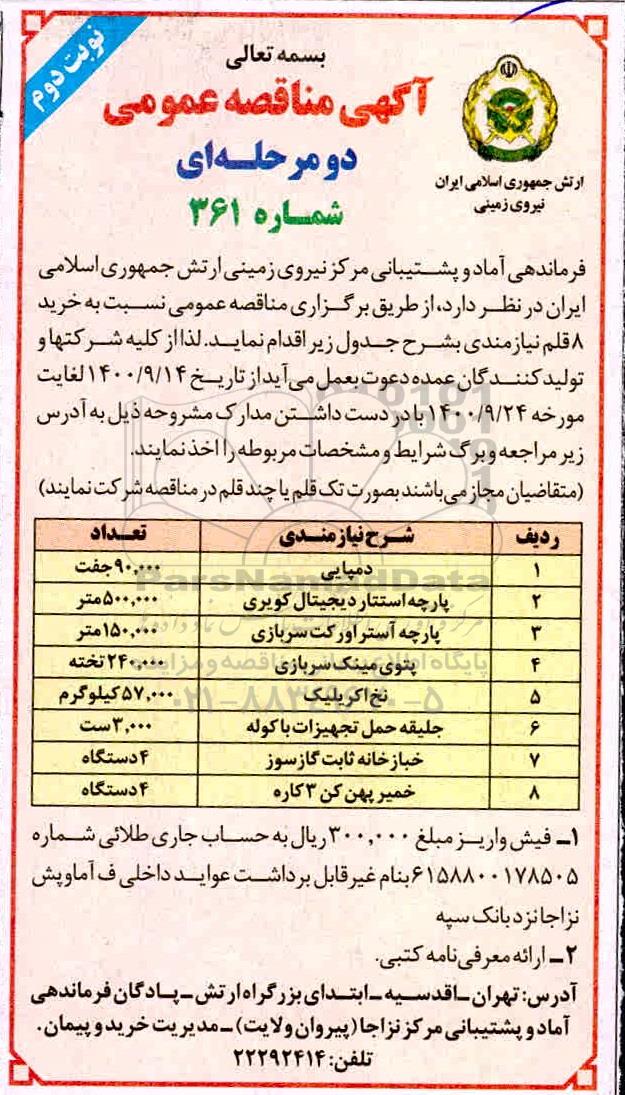 نوبت دوم
بسمه تعالی
آگهی مناقصه عمومی
دو مرحله‌ای
شماره ۳۶۱
ارتش جمهوری اسلامی ایران
نیروی زمینی
فرماندهی آماد و پشتیبانی مرکز نیروی زمینی ارتش جمهوری اسلامی
ایران در نظر دارد، از طریق برگزاری مناقصه عمومی نسبت به خرید
۸ قلم نیازمندی بشرح جدول زیر اقدام نماید. لذا از کلیه شرکتها و
تولید کنندگان عمده دعوت بعمل می‌آید از تاریخ ۱۴۰۰/۹/۱۴ لغایت
مورخه ۱۴۰۰/۹/۲۴ با در دست داشتن مدارک مشروحه ذیل به آدرس
زیر مراجعه و برگ شرایط و مشخصات مربوطه را اخذ نمایند.
(متقاضیان مجاز می‌باشند بصورت تک قلم یا چند قلم در مناقصه شرکت نمایند)
ردیف شرح نیازمندی تعداد
۱ دمپایی ۹۰,۰۰۰ جفت
۲ پارچه استتار دیجیتال کویری ۵۰۰,۰۰۰ متر
۳ پارچه آستر اورکت سربازی ۱۵۰,۰۰۰ متر
۴ پتوی مینک سربازی ۲۴۰,۰۰۰ تخته
۵ نخ اکریلیک ۵۷,۰۰۰ کیلوگرم
۶ جلیقه حمل تجهیزات با کوله ۳,۰۰۰ ست
۷ خبازخانه ثابت گازسوز ۴ دستگاه
۸ خمیر پهن کن ۳ کاره ۴ دستگاه
۱ـ فیش واریز مبلغ ۳۰۰,۰۰۰ ریال به حساب جاری طلائی شماره
۶۱۵۸۸۰۰۱۷۸۵۰۵ بنام غیر قابل برداشت عواید داخلی ف آماوپش
نزاجا نزد بانک سپه
۲ـ ارائه معرفی‌نامه کتبی.
آدرس: تهران ـ اقدسیه ـ ابتدای بزرگراه ارتش ـ پادگان فرماندهی
آماد و پشتیبانی مرکز نزاجا (پیروان ولایت) ـ مدیریت خرید و پیمان.
تلفن: ۲۲۲۹۲۴۱۴
ParsNamadData
پایگاه اطلاع رسانی مناقصه و مزایده